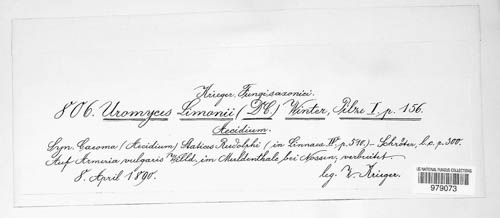 Krieger, Fungi saxonici.
806. Uromyces Limonii (DC) Winter, Pilze I, p. 156.
Aecidium.
Syn. Caeoma (Aecidium) Statices Rudolphi (in Linnaea IV p. 510) – Schröter, l. c. p. 300.
Auf Armeria vulgaris Willd. im Muldenthale, bei Nossen, verbreitet
8. April 1890. leg. W. Krieger.
US NATIONAL FUNGUS COLLECTIONS
979073